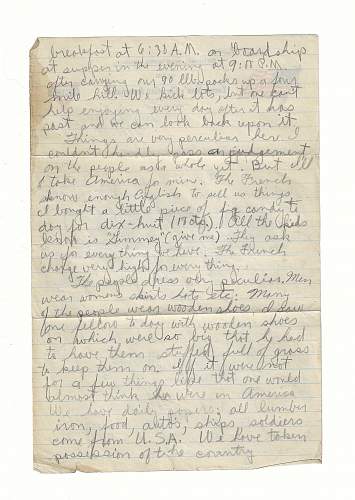 breakfast at 6:30 A.M. on boardship
at supper in the evening at 9:00 P.M.
after carrying our 90 lb. packs up a four
mile hill. We kick lots, but one can't
help enjoying every day after it has
past and we can look back upon it.
Things are very perculiar here. I
couldn't hardly pass an judgement
on the people as a whole yet. But I'll
take America for mine. The French
know enough English to sell us things
I bought a little piece of fig candy to
day for dix-huit (18 cts.) All the kids
know is Gimmey (give me). They ask
us for everything we have. The French
charge very high for every thing.
The people dress very peculiar. Men
wear womens shirts hats etc. Many
of the people wear wooden shoes. I saw
one fellow to day with wooden shoes
on which were so big that he had
to have them stuffed full of grass
to keep them on. If it were not
for a few things like that one would
almost think he were in America
We have daily papers; all lumber
iron, food, autos, ships, soldiers
come from U.S.A. We have taken
possession of the country